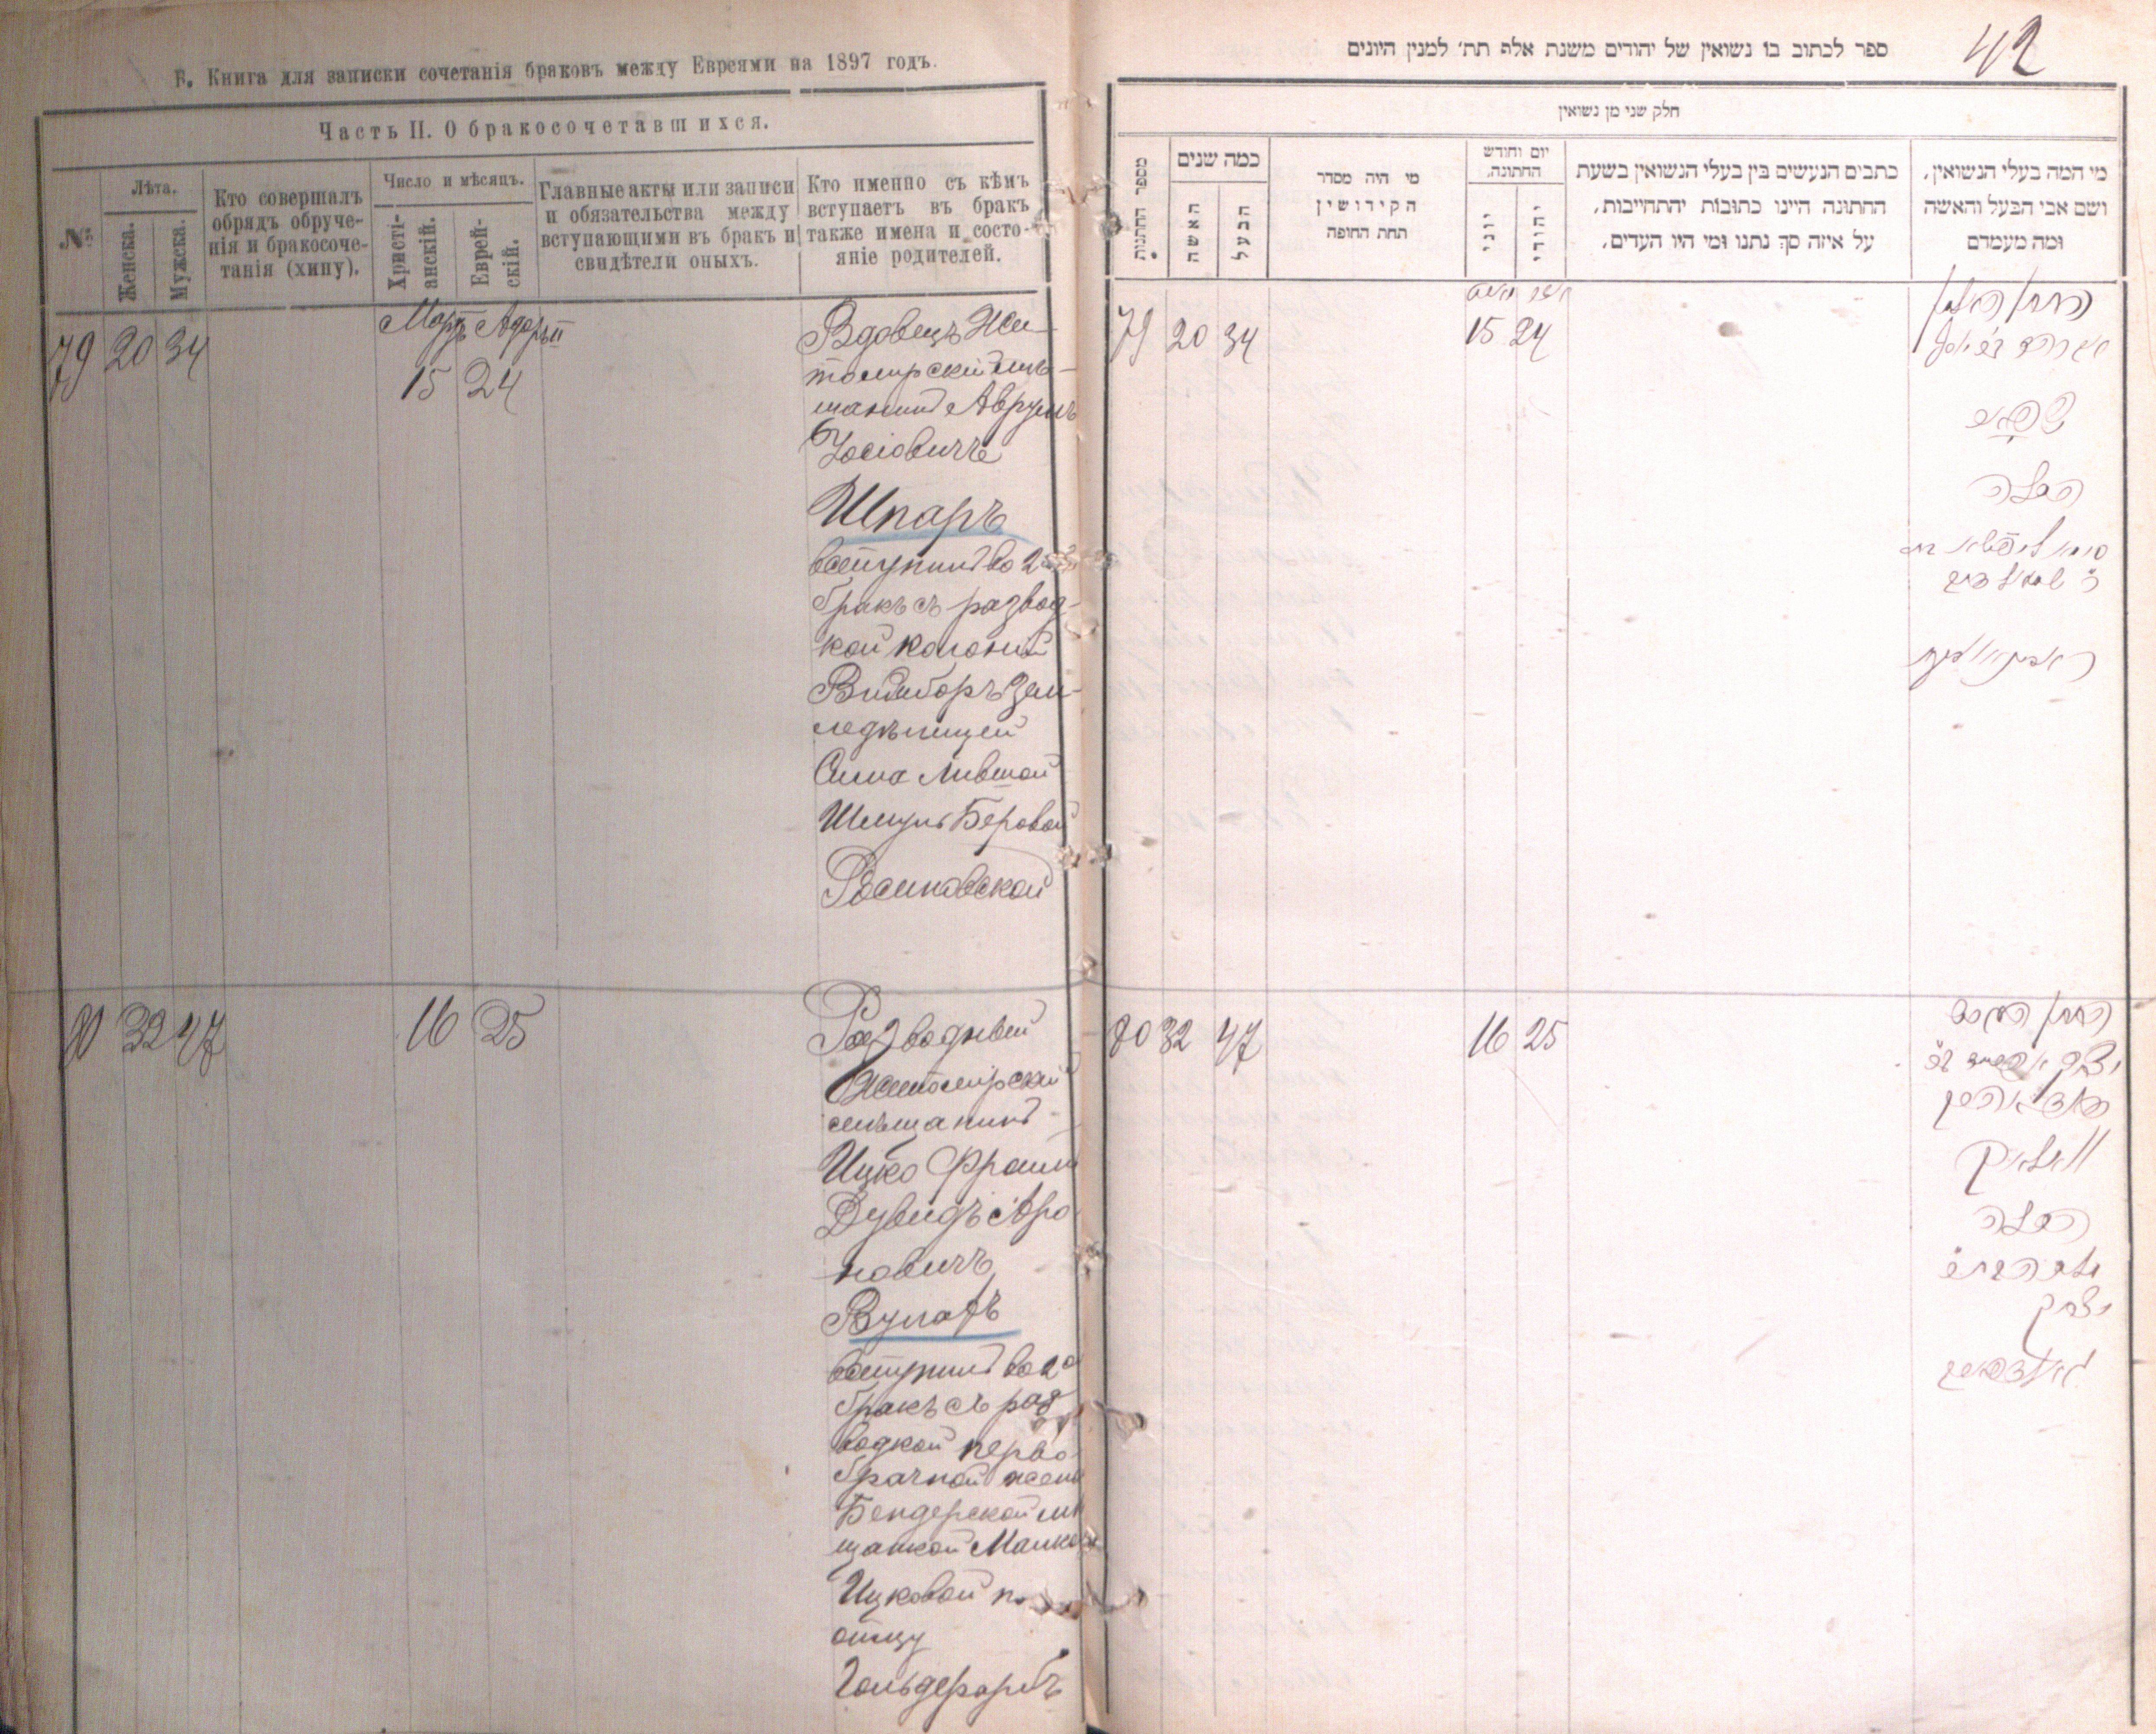 Б. Книга для записки сочетанія браковъ между Евреями на 1897 годъ.
Часть II. О бракосочетавшихся.
№
Лѣта.
Женска.
Мужска.
Кто совершалъ
обрядъ обруче-
нія и бракосоче-
танія (хипу).
Число и мѣсяцъ.
Христі-
анскій.
Еврей-
скій.
Главные акты или записи
и обязательства между
вступающими въ бракъ и
свидѣтели оныхъ.
Кто именно съ кѣмъ
вступаетъ въ бракъ
также имена и состо-
яніе родителей.
79 20 34
Мартъ Адаръ II
15 24
Вдовецъ Жи-
томирскій мѣ-
щанинъ Аврумъ
Іосіовичъ
Шпаръ
вступилъ во 2й
бракъ съ развод-
кой колоніи
Зем-
ледѣлицей
Сима Лившой
Шмуль Беровой
80 32 47
16 25
Разводный
Житомірскій
мѣщанинъ
Ицко Фроим
Дувидъ Аро
новичъ
Вулахъ
вступилъ во 2й
бракъ съ раз
водкой перво
брачной жены
Бендерской мѣ
щанкой
Ицковой по
отцу
Гольдфарбъ
42
ספר לכתוב בו נשואין של יהודים משנת אלף תת׳ למנין היונים
חלק שני מן נשואין
מספר החתונות
כמה שנים
האשה
הבעל
מי היה מסדר
הקידושין
תחת החופה
יום וחודש
החתונה,
יוני
יהודי
כתבים הנעשים בין בעלי הנשואין בשעת
החתונה היינו כתובות יהתחייבות,
על איזה סך נתנו ומי היו העדים,
מי המה בעלי הנשואין,
ושם אבי הבעל והאשה
ומה מעמדם
79 20 34
15 24
החתן האלמן
שפאר
הכלה
80 32 47
16 25
החתן הגרוש
וואלאך
הכלה
יצחק
גאלדפארב